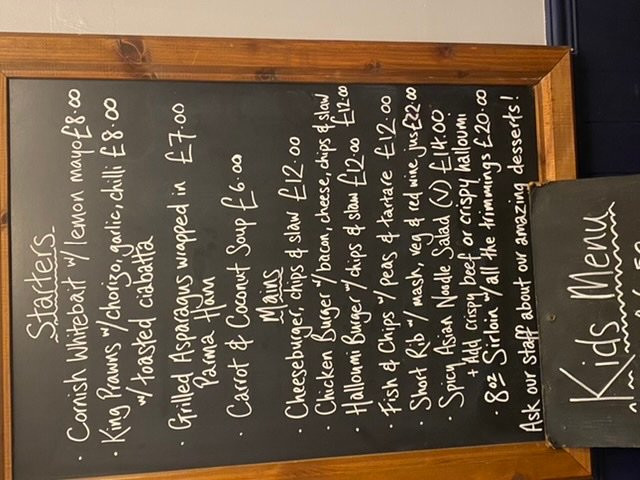 Starters
· Cornish Whitebait w/ lemon mayo £8.00
· King Prawns w/chorizo, garlic, chilli £8.00
w/toasted ciabatta
· Grilled Asparagus wrapped in £7.00
Parma Ham
· Carrot & Coconut Soup £6.00
Mains
· Cheeseburger, chips & slaw £12.00
· Chicken Burger w/bacon, cheese, chips & slaw £12.00
· Halloumi Burger w/chips & slaw £12.00
· Fish & Chips w/ peas & tartare £12.00
· Short Rib w/ mash, veg & red wine jus £22.00
· Spicy Asian Noodle Salad (v) £14.00
+ Add crispy beef or crispy halloumi
· 8oz Sirloin w/all the trimmings £20.00
Ask our staff about our amazing desserts!
Kids Menu